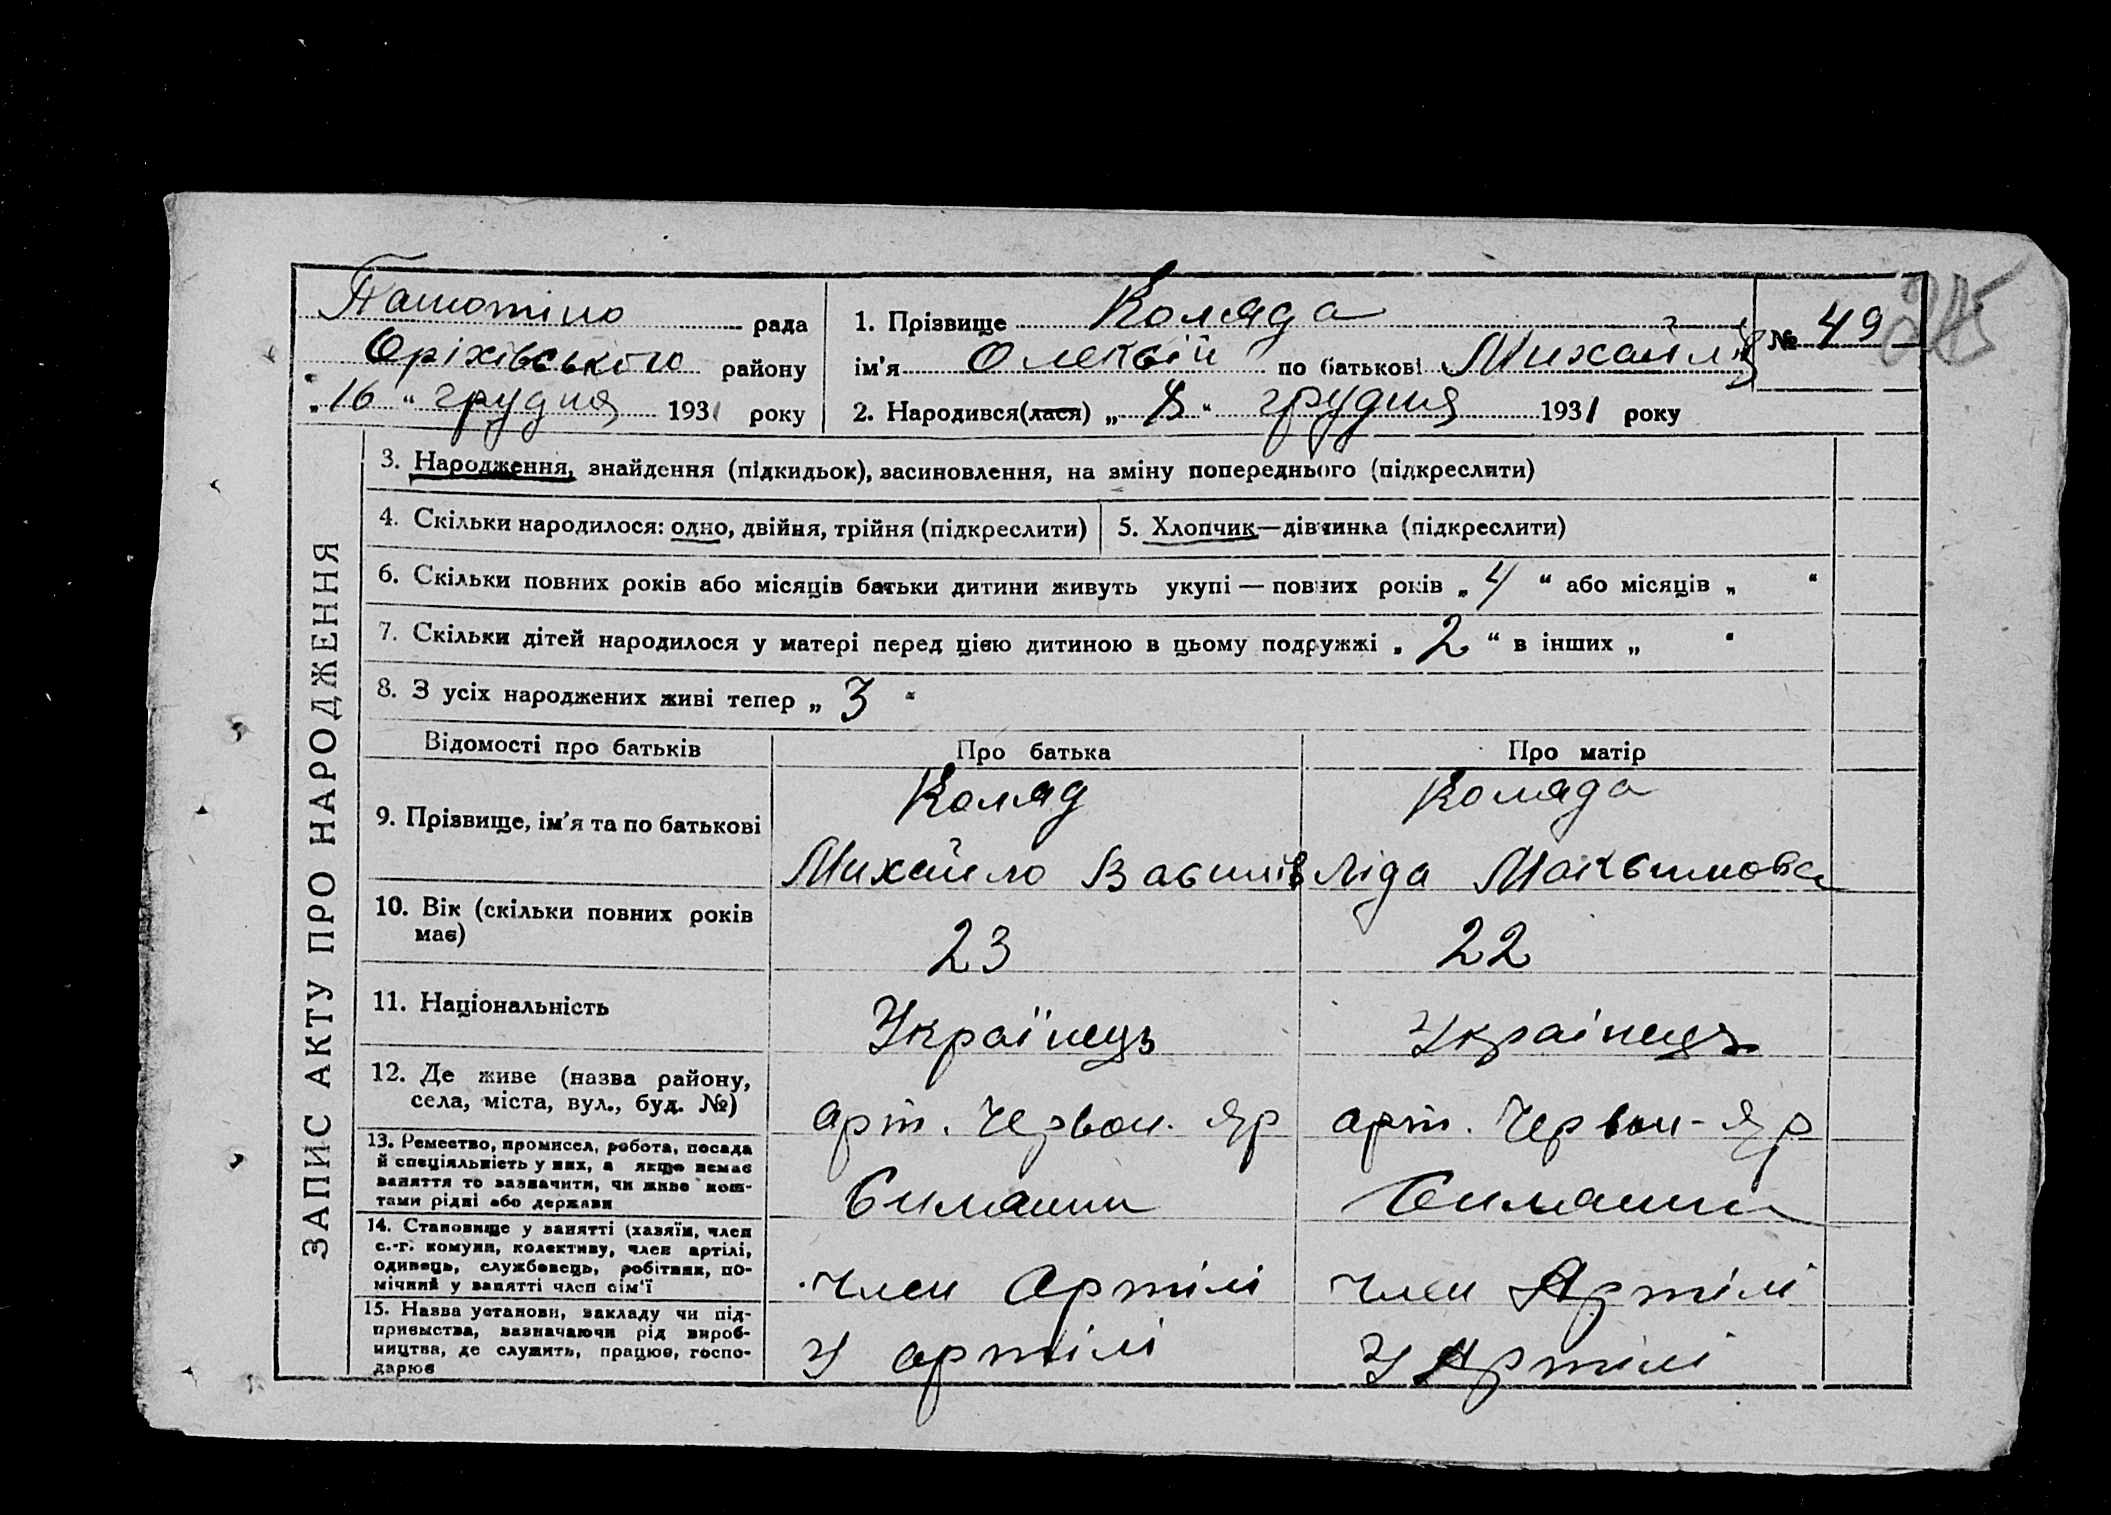 рада
Оріхівського району
„16“ грудня 1931 року
1. Прізвище Коляда
№ 49
ім'я Олексій по батькові
2. Народився(лася) „ “ грудня 1931 року
ЗАПИС АКТУ ПРО НАРОДЖЕННЯ
3. Народження, знайдення (підкидьок), засиновлення, на зміну попереднього (підкреслити)
4. Скільки народилося: одно, двійня, трійня (підкреслити)
5. Хлопчик—дівчинка (підкреслити)
6. Скільки повних років або місяців батьки дитини живуть укупі — повних років „4“ або місяців „ “
7. Скільки дітей народилося у матері перед цією дитиною в цьому подружжі „2“ в інших „ “
8. З усіх народжених живі тепер „3“
Відомості про батьків
Про батька
Про матір
9. Прізвище, ім'я та по батькові
Коляд
Михайло Василів
Коляда
Ліда Максимовна
10. Вік (скільки повних років
має)
23
22
11. Національність
Українець
Украінець
12. Де живе (назва району,
села, міста, вул., буд. №)
арт. Червон. Яр
арт. Червон-Яр
13. Ремество, промисел, робота, посада
й спеціяльність у них, а якщо немає
заняття то зазначити, чи живе кош-
тами рідні або держави
14. Становище у занятті (хазяїн, член
с.-г. комуни, колективу, член артілі,
одинець, службовець, робітник, по-
мічний у занятті член сім'ї
член Артілі
член Артілі
15. Назва установи, закладу чи під-
приємства, зазначаючи рід вироб-
ництва, де служить, працює, госпо-
дарює
У артілі
У Артілі